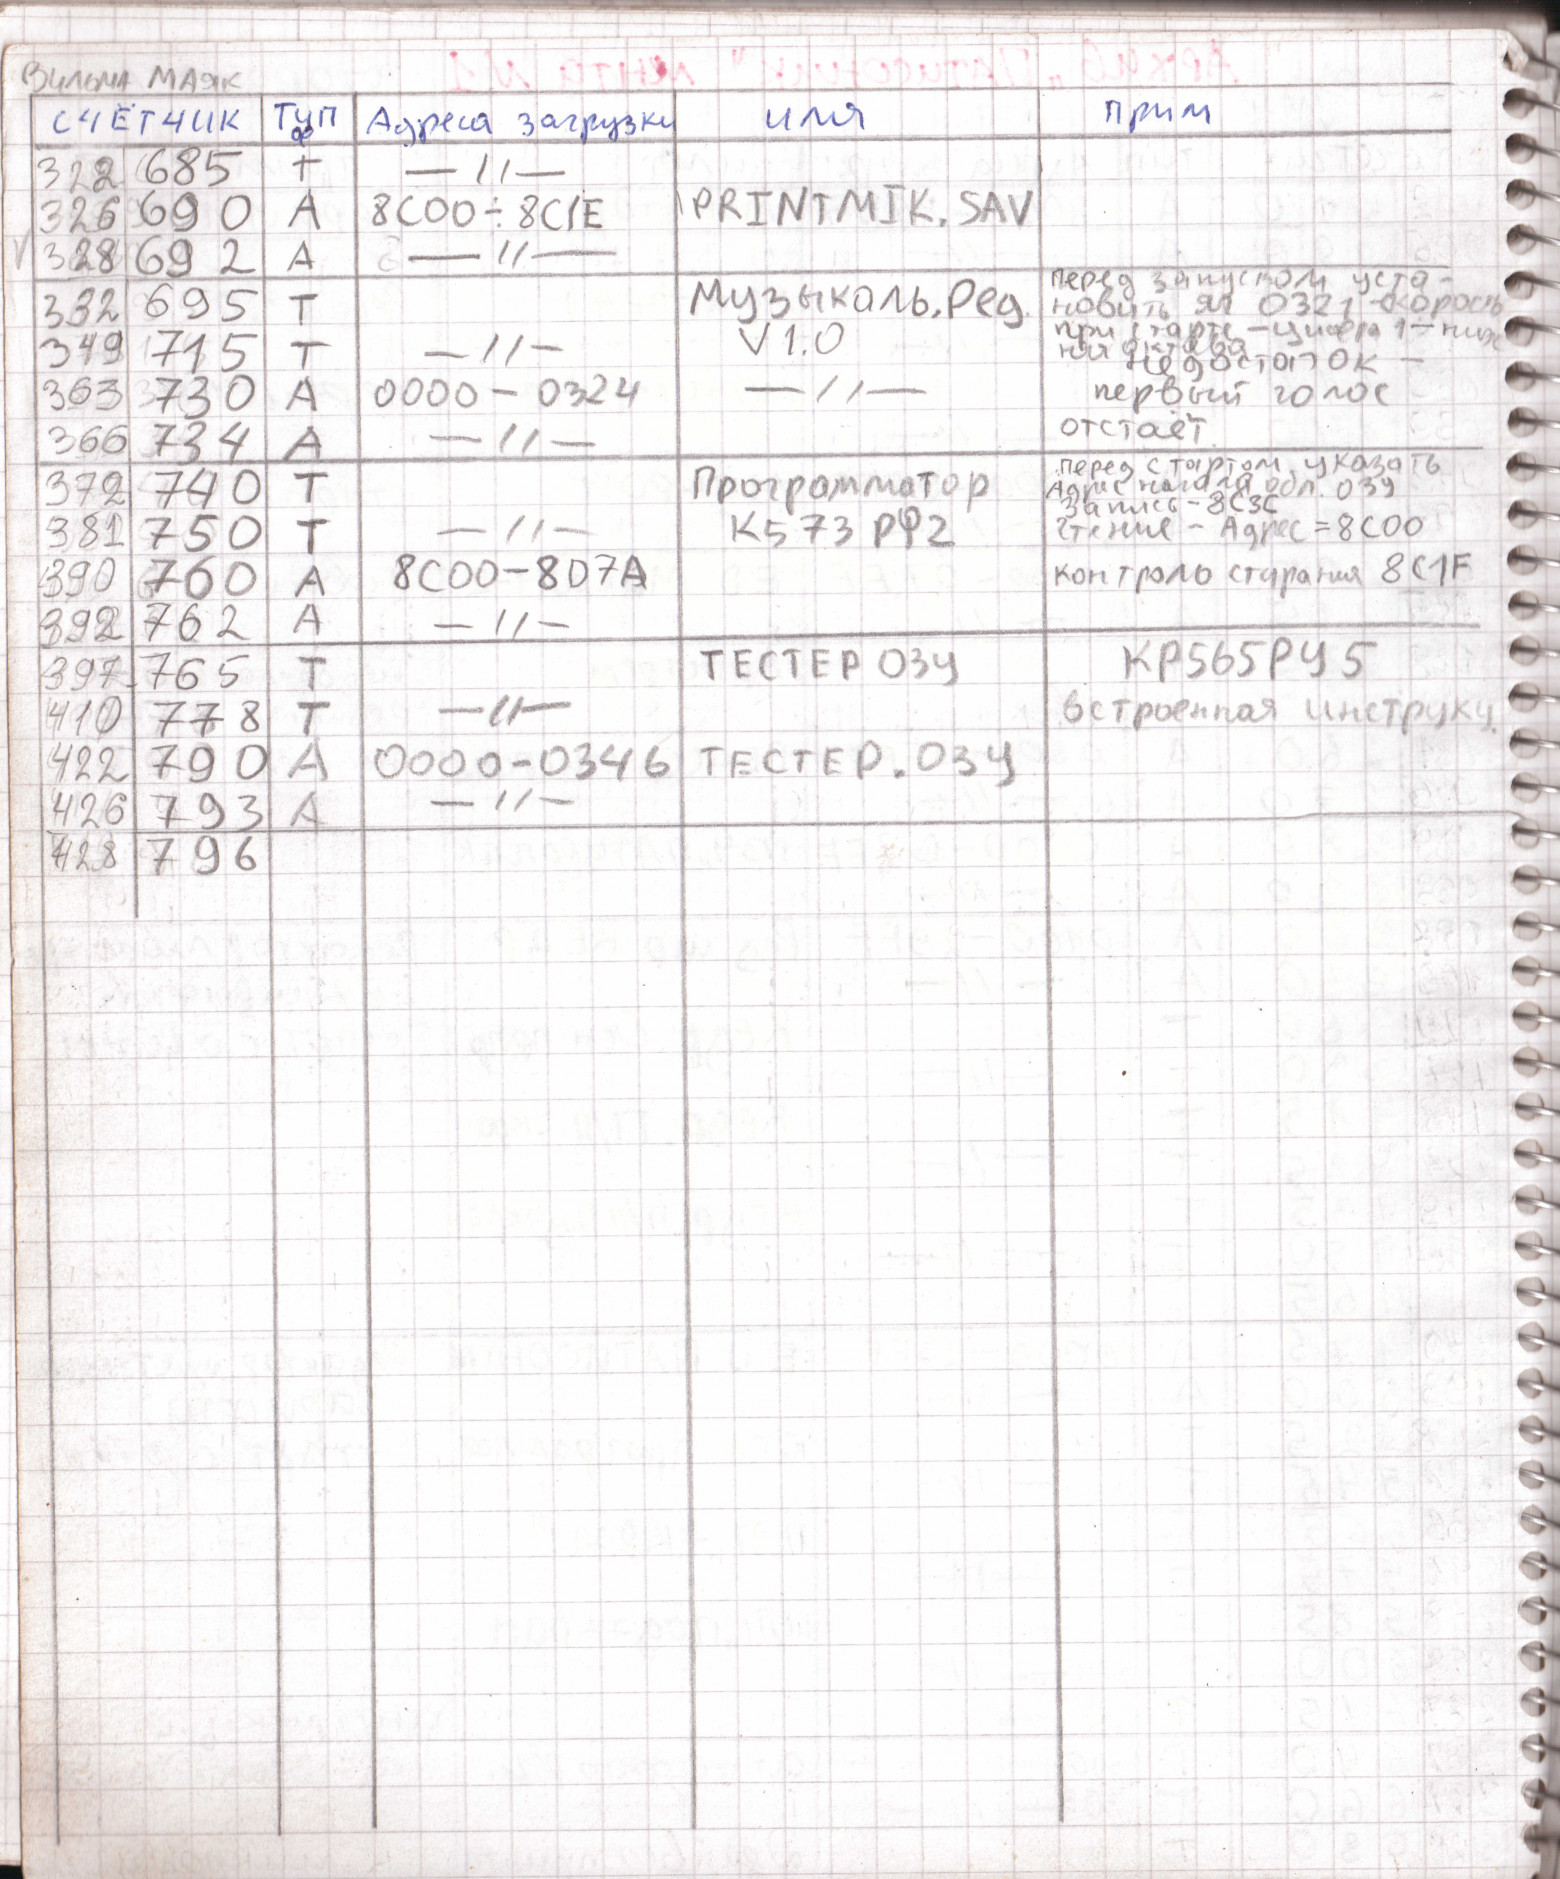 Вильма МАЯК
СЧЁТЧИК Тип ф Адреса загрузки имя прим
322 685 Т —//—
326 690 А 8C00÷8C1E PRINTMIK.SAV
328 692 А —//—
332 695 Т Музыкаль.Ред. перед запуском уста-
новить яч 0321 скорость
349 715 Т —//— V1.0 при старте —цифра 1—
Недостаток —
363 730 А 0000—0324 —//— первый голос
366 734 А —//— отстаёт
372 740 Т Программатор перед стартом указать
Адрес начала обл. ОЗУ
Запись—8C3C
381 750 Т —//— К573РФ2 чтение — Адрес=8C00
390 760 А 8C00—8D7A контроль стирания 8C1F
392 762 А —//—
397 765 Т ТЕСТЕР ОЗУ КР565РУ5
410 778 Т —//— встроенная инструкц.
422 790 А 0000—0346 ТЕСТЕР.ОЗУ
426 793 А —//—
428 796